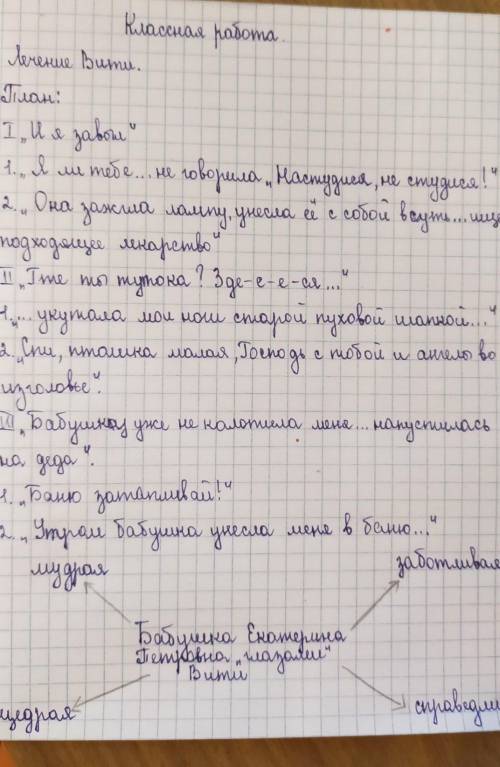 Классная работа.
Лечение Вити.
План:
I „И я завыл“
1. „Я ли тебе... не говорила „Настудися, не студися!“
2. „Она зажгла лампу, унесла её с собой в куть... ище
подходящее лекарство“
II „Где ты тутока? Зде-е-е-ся...“
1. „... укутала мои ноги старой пуховой шалкой...“
2. „Спи, пташка малая, Господь с тобой и ангелы во
изголовье“.
III „Бабушка уже не колотила меня... напустилась
на деда“.
1. „Баню затапливай!“
2. „Утром бабушка унесла меня в баню...“
мудрая
заботливая
Бабушка Екатерина
Петровна „глазами“
Вити
щедрая
справедли